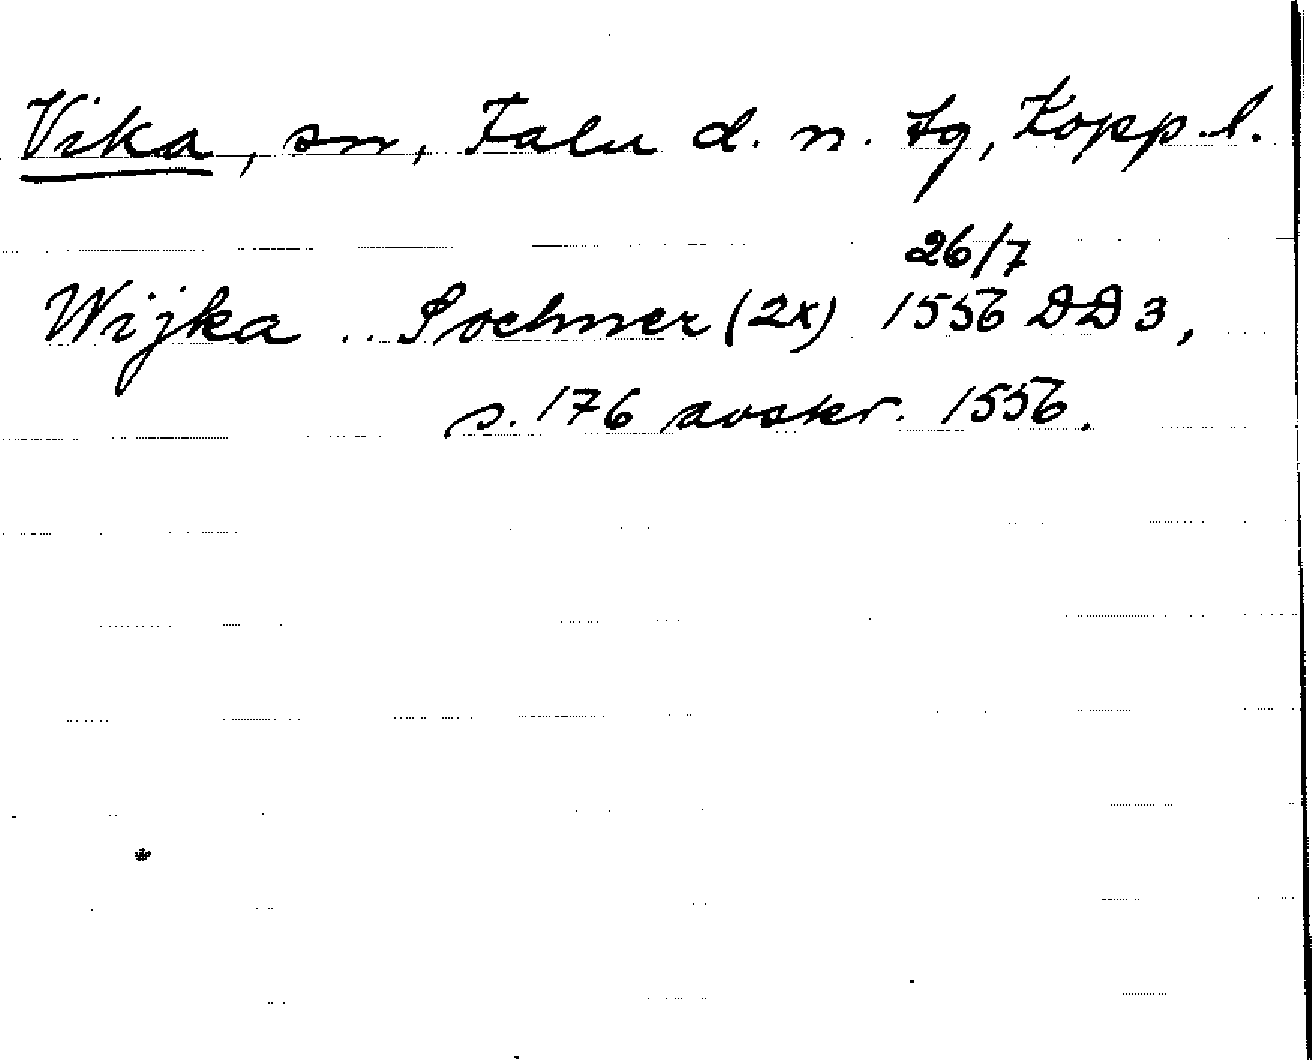 Vika, sn, Falu d. n. tg, Kopp. l.
26/7
Wijka .. Sochner (2x) 1556 DD 3,
s. 176 avskr. 1556.